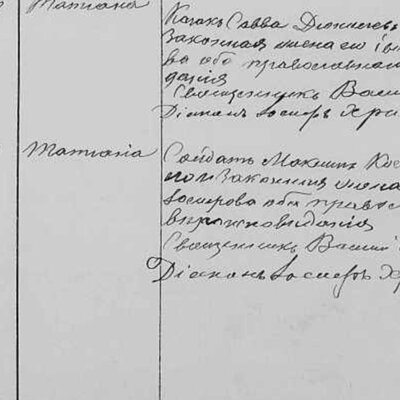 Татиана
Козакъ Савва Діонисіевъ
Законная жена его І
ва оба православнаго
данія
Священникъ Васи
Діаконъ Іосифъ Хри
Татіанія
Солдатъ Максимъ Кос
Законная жена
Іосифова оба правос
вѣроисповѣданія
Священникъ Васил
Діаконъ Іосифъ Хр